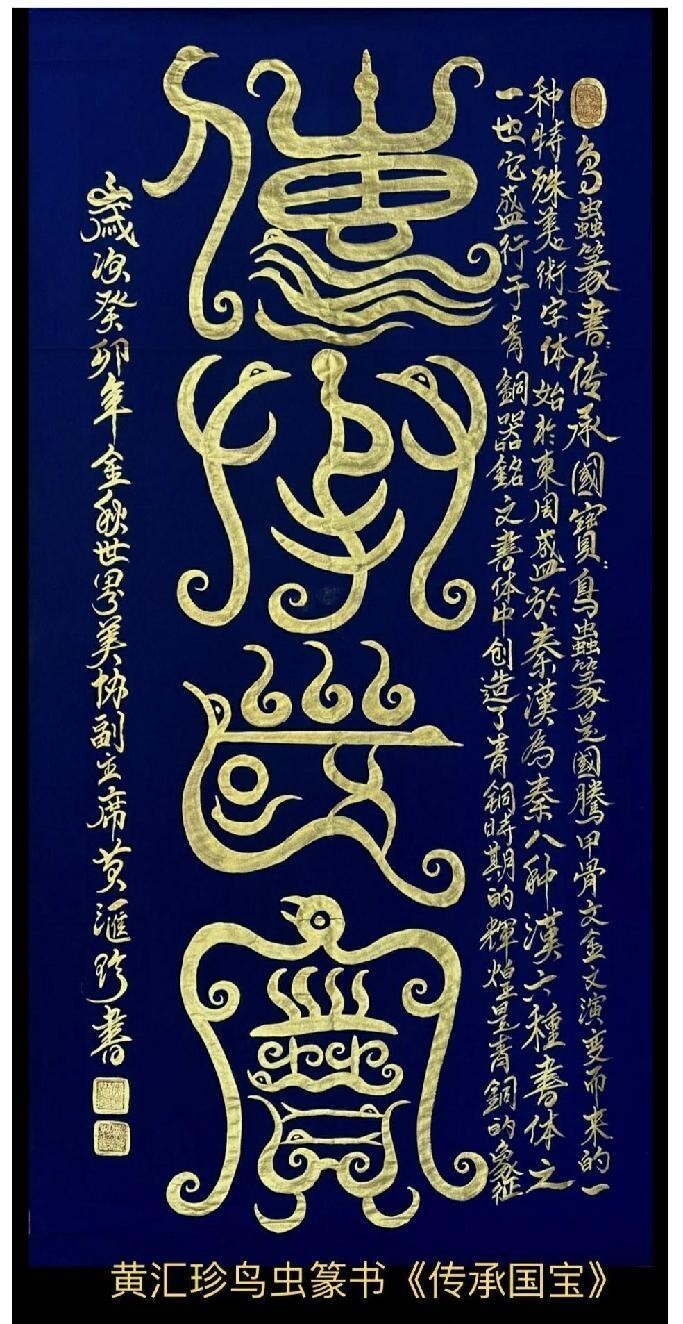 鳥蟲篆書:传承國寶:鳥蟲篆是國騰甲骨文金文演变而来的一
种特殊美術字体始於東周盛於秦漢為秦八种漢六種書体之
一也它盛行于青銅器銘文書体中创造了青銅時期的輝煌是青銅的象征
傳承國寶
歲次癸卯年金秋世界美协副主席黄滙珍書
黄汇珍鸟虫篆书《传承国宝》